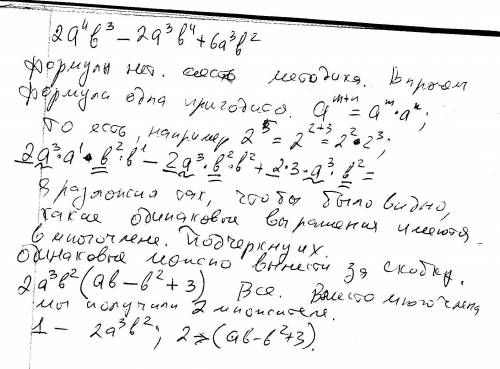 2a⁴b³ − 2a³b⁴ + 6a³b²
Формулы нет. есть методика. Впрочем
формула одна пригодится. aᵐ⁺ⁿ = aᵐ·aⁿ;
То есть, например 2⁵ = 2²⁺³ = 2²·2³;
2a³·a¹·b²·b¹ − 2a³·b²·b² + 2·3·a³·b² =
Я разложил так, чтобы было видно,
какие одинаковые выражения имеются
в многочлене. Подчеркну их.
одинаковые можно вынести за скобку.
2a³b²(ab − b² + 3) Все. Вместо многочлена
мы получили 2 множителя.
1 − 2a³b²; 2 → (ab − b² + 3).